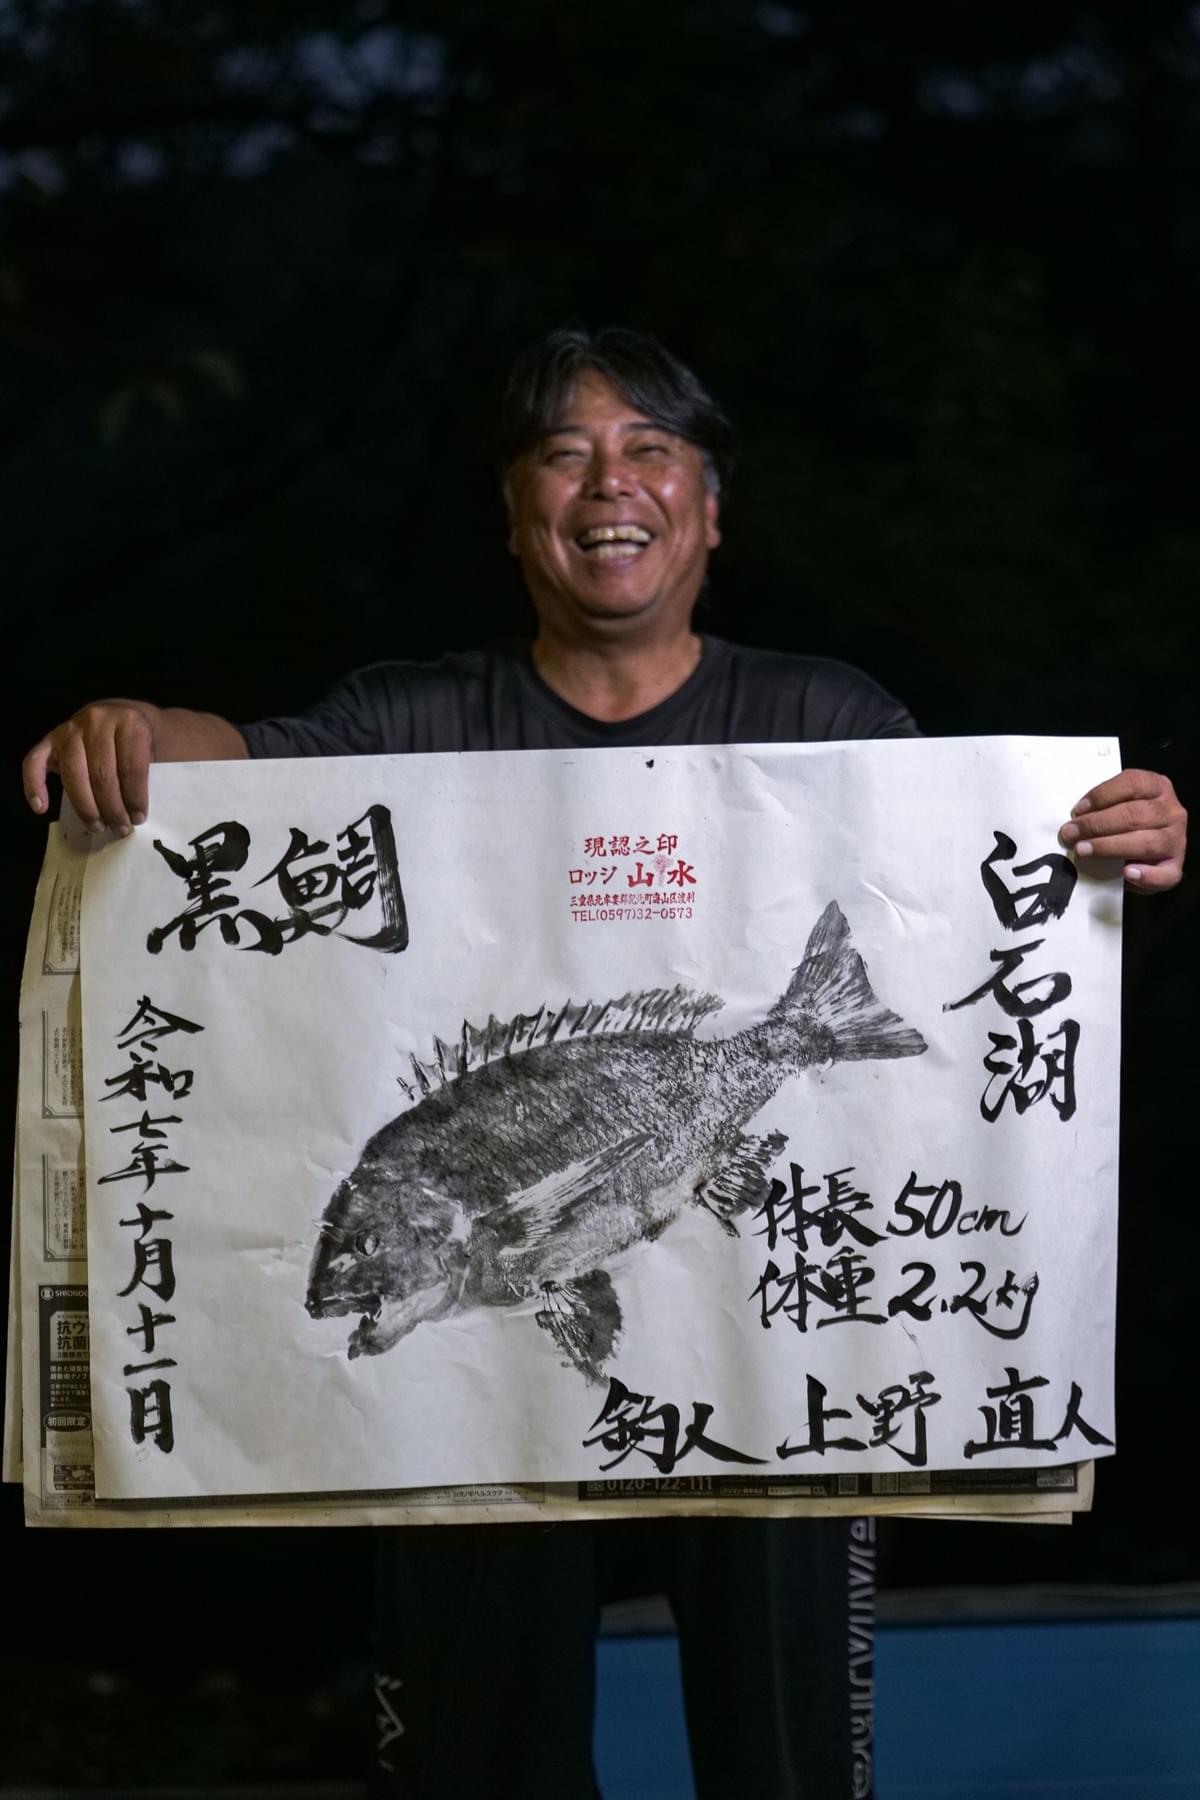 黒鯛
令和七年十月十一日
現認之印
ロッジ 山水
三重県北牟婁郡紀北町海山区渡利
TEL(0597)32-0573
白石湖
体長 50cm
体重 2.2kg
釣人 上野 直人
SHIONOG
抗ウ
抗菌
初回限定
シオノギヘルスケア
0120-122-111